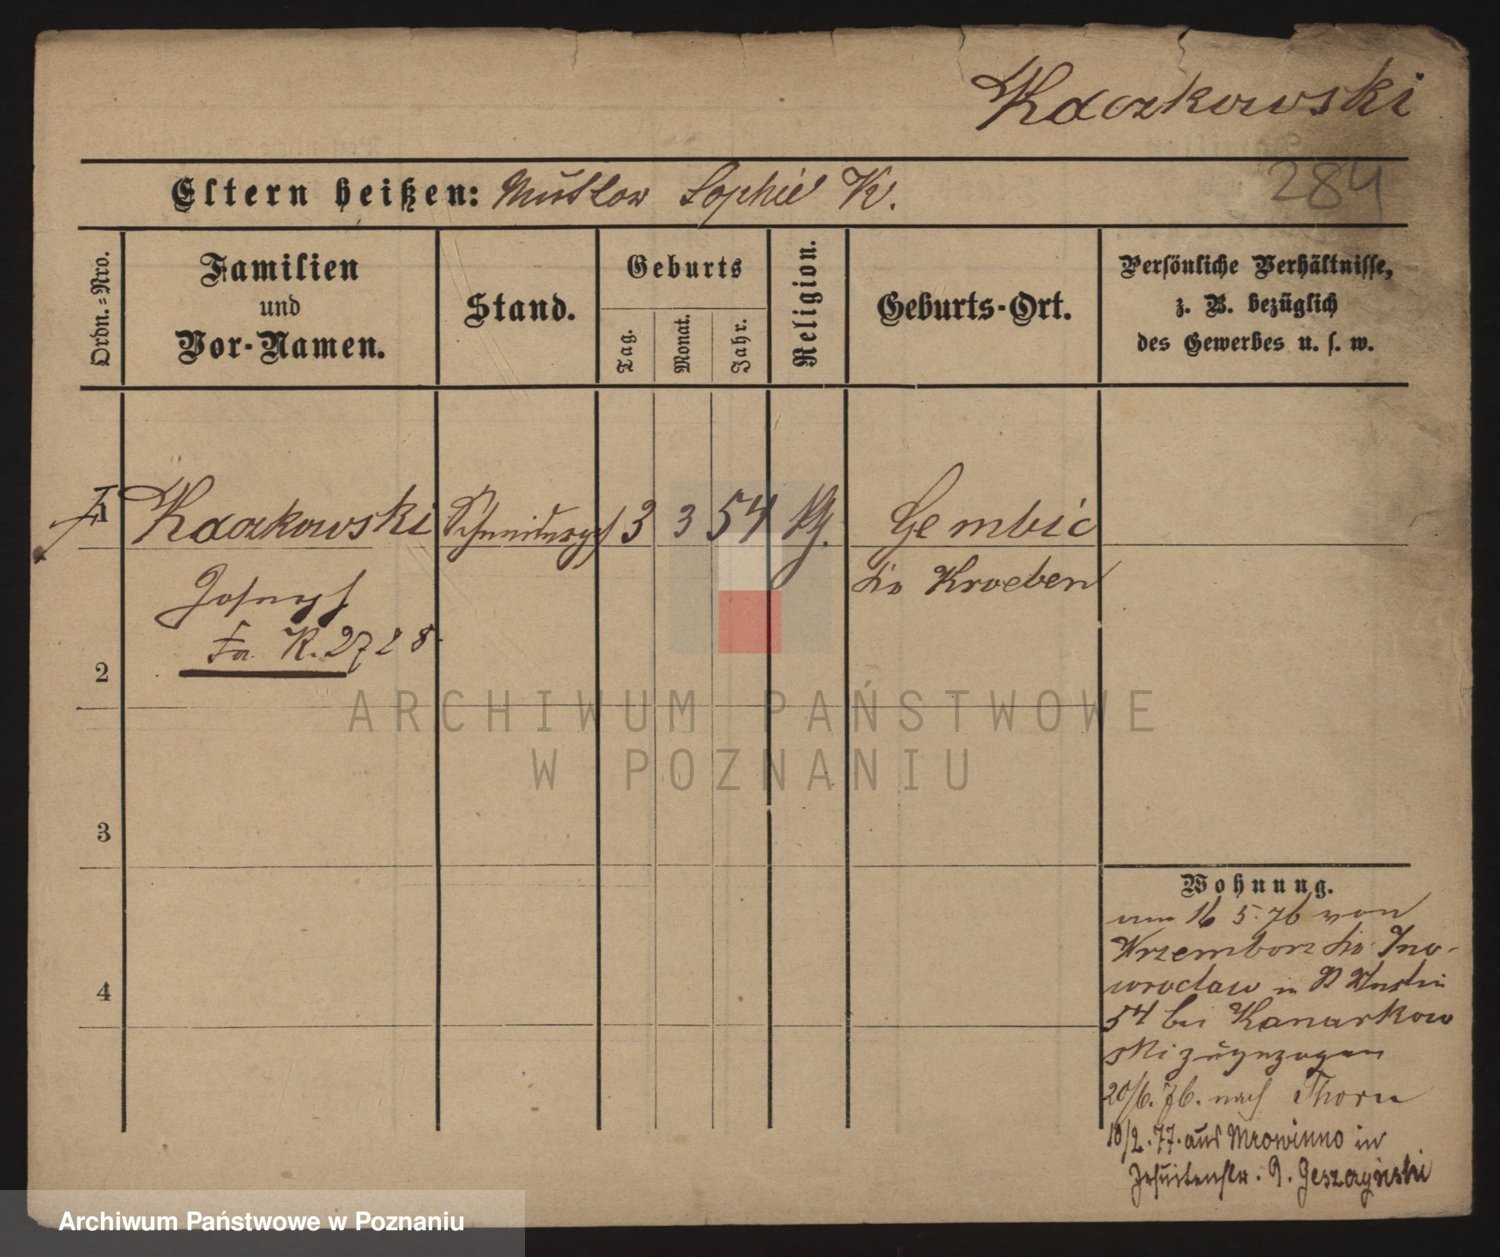 Kaczkowski
284
Eltern heißen: Mutter Sophie K.
Ordn.=Nro.
Familien
und
Vor-Namen.
Stand.
Geburts
Tag.
Monat.
Jahr.
Religion.
Geburts-Ort.
Persönliche Verhältnisse,
z. B. bezüglich
des Gewerbes u. s. w.
1 Kaczkowski Schneidergs 3 3 54 Gembic
Joseph Krs Kroeben
Fa. K. 2728
2
ARCHIWUM PAŃSTWOWE
W POZNANIU
3
4
Wohnung.
am 16 5. 76 von
Krzemborz Krs Ino-
wroclaw in
54 bei Kanarkow
ski zugezogen
20/6. 76. nach Thorn
10/2. 77. aus Mrowinno in
Jesuitenstr.
Archiwum Państwowe w Poznaniu